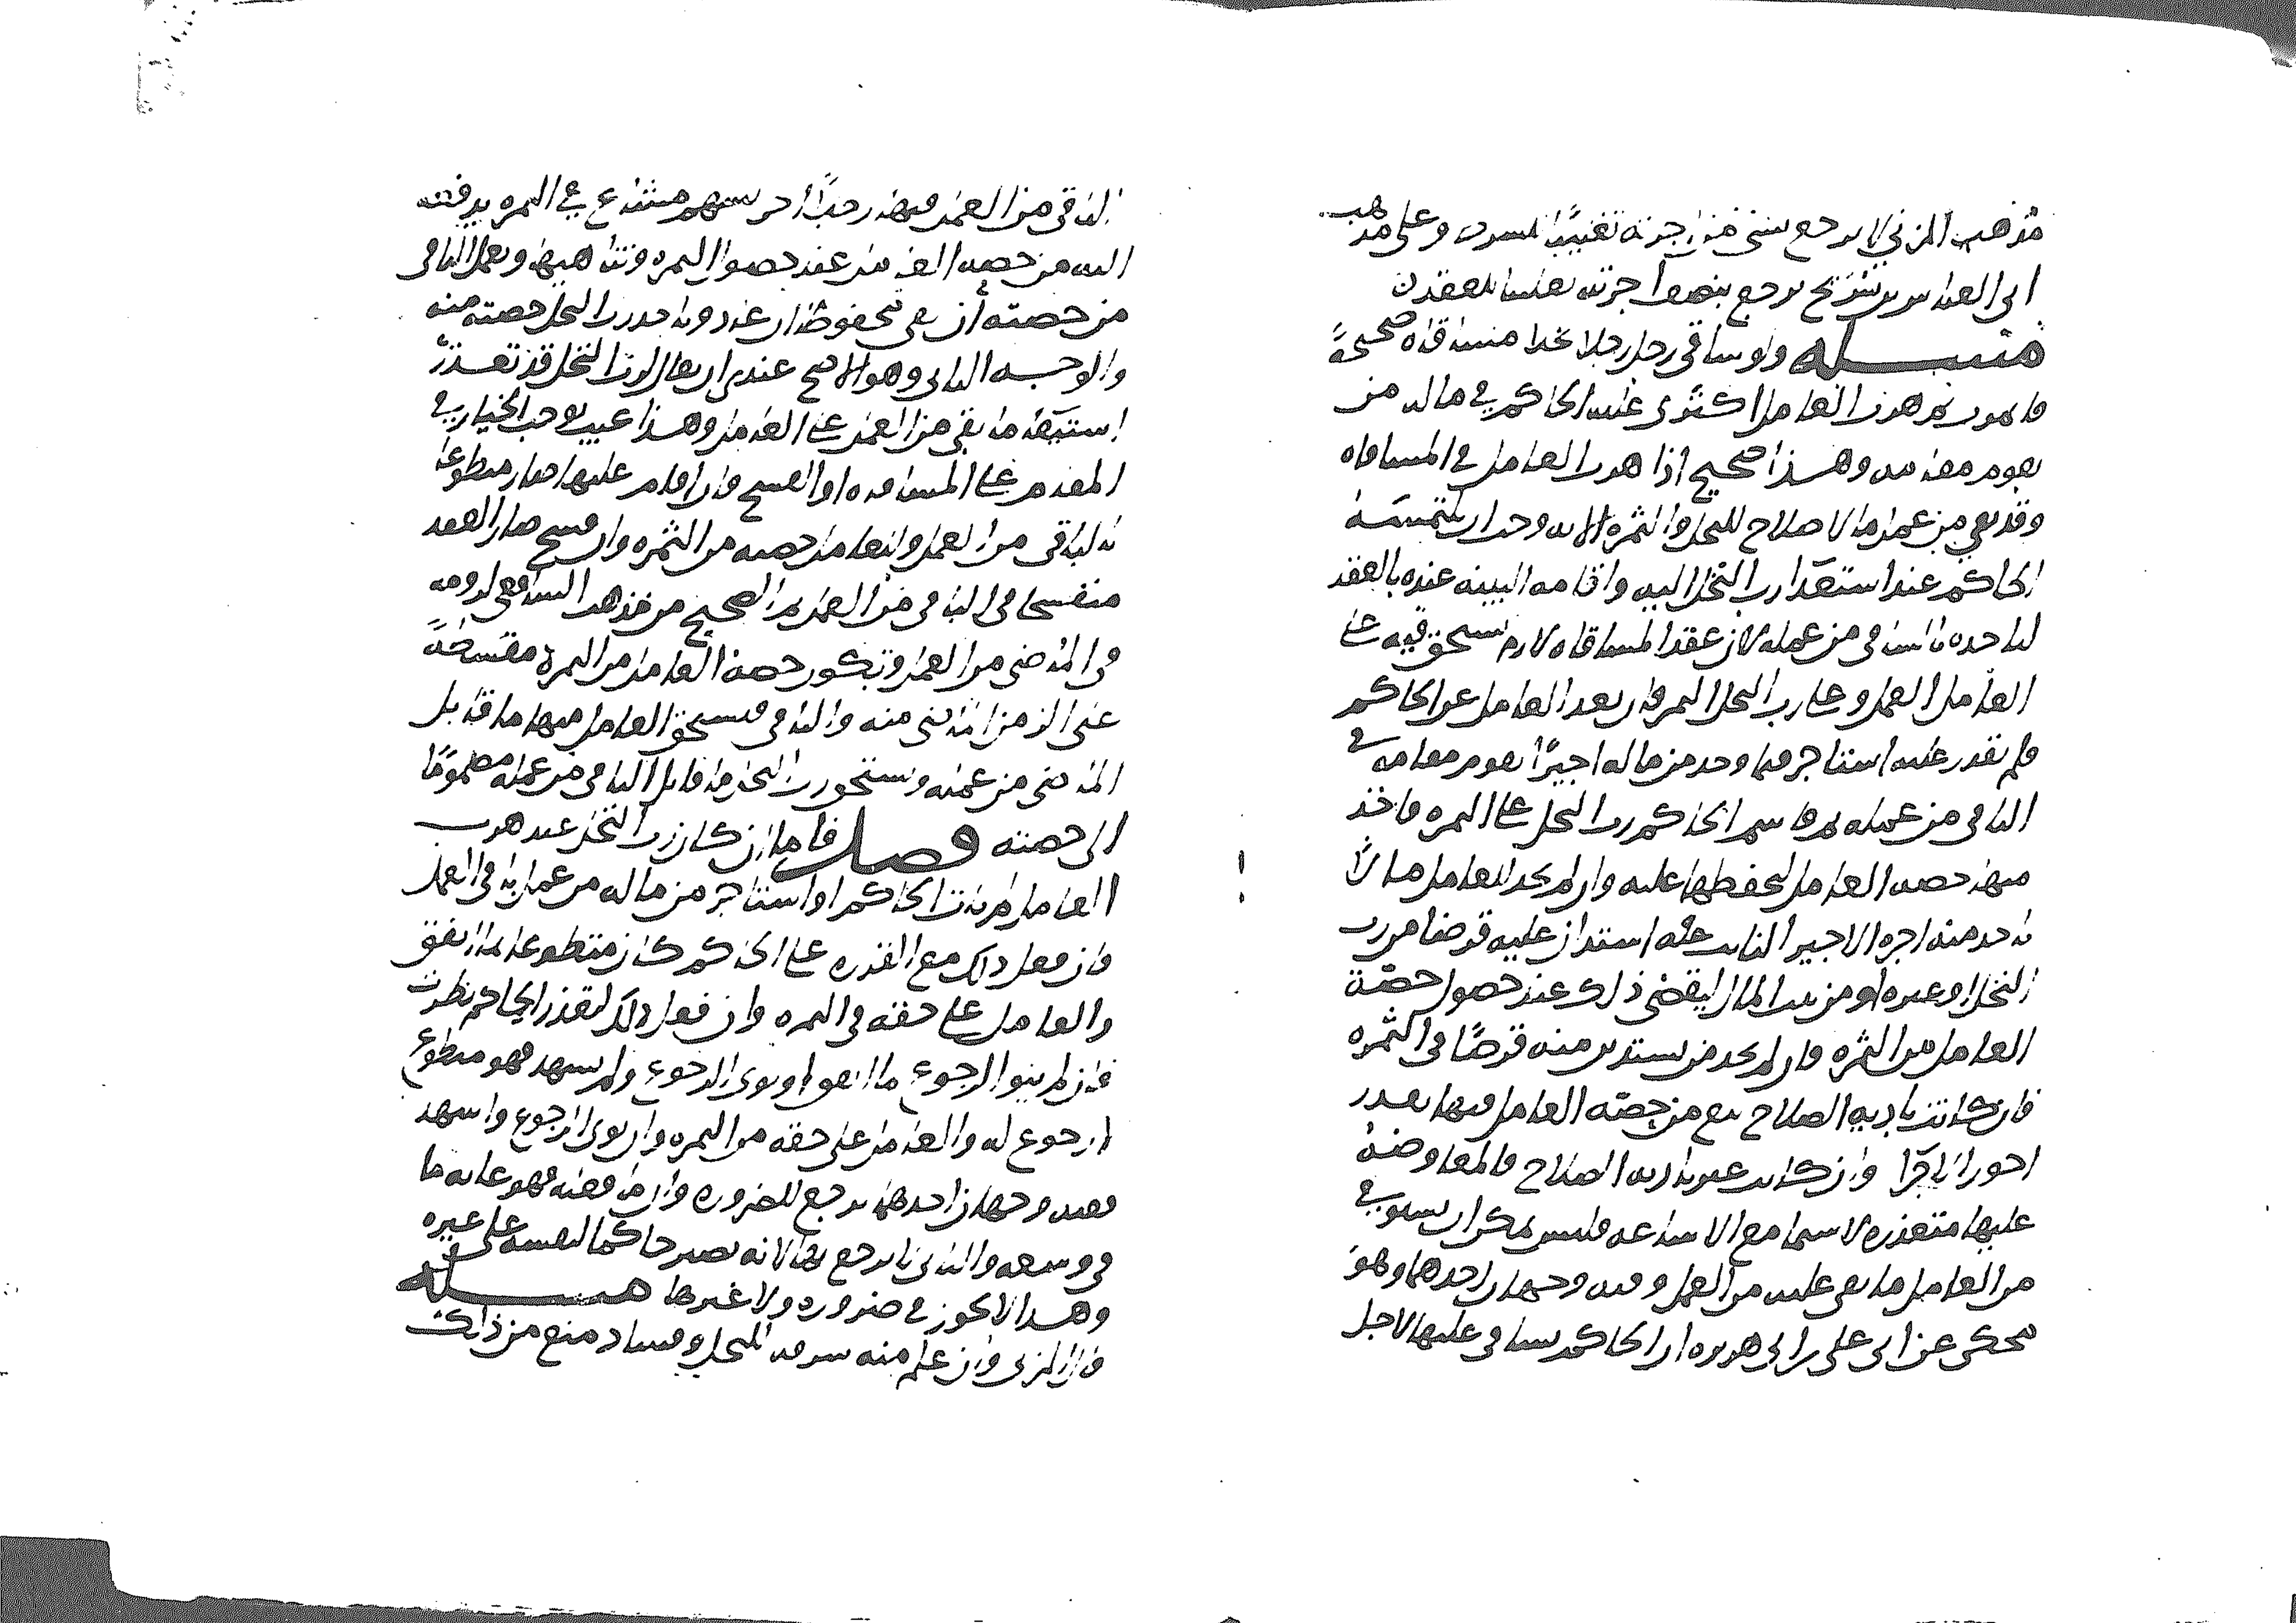 مذهب المزني لا يرجع بشي من اجرته تغليبا للسرب وعلى مذهب
ابي العباس بن سريج يرجع بنصف اجرته تغليبا للعقد
مسئله ولو ساقى رجل رجلا نخلا مساقاه صحيحةً
فاثمرت ثم هرب العامل اكترى عليه الحاكم في ماله من
يقوم مقامه وهذا صحيح اذا هرب العامل في المساقاه
وقد بقي من عمله ما لا صلاح للنخل والثمره الا به وجب ان يلتمسه
الحاكم عند استعدا رب النخل اليه واقامه البينه عنده بالعقد
لياخذه بالباقي من عمله لان عقد المساقاه لازم يستحق فيه على
العامل العمل وعلى رب النخل الثمر فان بعد العامل عن الحاكم
فلم يقدر عليه استاجر فيما وجد من ماله اجيرًا يقوم مقامه في
الباقي من عمله ثم قاسم الحاكم رب النخل على الثمره فاخذ
منها حصه العامل ليحفظها عليه وان لم يجد للعامل مالاً
ياخذ منه اجره الاجير النائب عنه استدان عليه قرضا من رب
النخل او غيره او من بيت المال ليقضي ذلك عند حصول حصة
العامل من الثمره وان لم يجد من يستدين منه قرضًا في الثمره
فان كانت باديه الصلاح بيع من حصة العامل فيها بقدر
اجور الاجرا وان كانت غير باديه الصلاح فالمعاوضة
عليها متعذره لا سيما مع الاشاعه فليس يمكن ان يستوفي
من العامل ما بقي عليه من العمل وفيه وجهان احدهما وهو
محكى عن ابي علي بن ابي هريره ان الحاكم يساقي عليها لاجل
الباقي من العمل فيها رجلا اخر بسهم مشاع في الثمره يدفعه
اليه من حصه العامل عند حصول الثمره وتناهيها ويعمل الباقي
من حصته ان بقي محفوظا ان عاد وياخذ رب النخل حصته منه
والوجه الثاني وهو الاصح عندي ان يقال لرب النخل قد تعذر
استيفا ما بقي من العمل على العامل وهذا عيب يوجب الخيار في
المقام على المساقاه او الفسخ فان اقام عليها صار متطوعا
بالباقي من العمل وللعامل حصته من الثمره وان فسخ صار العقد
منفسخا في الباقي من العمل ثم الصحيح من مذهب الشافعي لزومه
في الماضي من العمل وتكون حصة العامل من الثمرة مقسطةً
على الزمن الماضي منه والباقي فيستحق العامل منها ما قابل
الماضي من عمله ويستحق رب النخل ما قابل الباقي من عمله مضمومًا
الى حصته فصل فاما ان كان رب النخل عند هرب
العامل لم يات الحاكم او استاجر من ماله من عمل باقي العمل
فان فعل ذلك مع القدره على الحاكم كان متطوعا بما انفق
والعامل على حقه في الثمره وان فعل ذلك لتعذر الحاكم نظرت
فان لم ينو الرجوع بما انفق او نوى الرجوع ولم يشهد فهو متطوع
لا رجوع له والعامل على حقه من الثمره وان نوى الرجوع واشهد
ففيه وجهان احدهما يرجع للضروره وان ما فعله فهو غايه ما
في وسعه والثاني لا يرجع بها لانه يصير حاكما لنفسه على غيره
وهذا لا يجوز في ضروره ولا غيرها مسئله
قال المزني وان علم منه سرقه النخل وفساد منع من ذلك